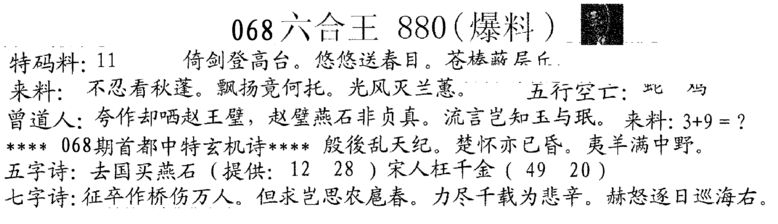 068六合王 880(爆料)
特码料: 11 倚剑登高台。悠悠送春目。苍榛蔽层丘
来料: 不忍看秋蓬。飘扬竟何托。光风灭兰蕙。 五行空亡: 蛇 鸡
曾道人: 夸作却哂赵王璧, 赵璧燕石非贞真。流言岂知玉与珉。 来料: 3+9=?
**** 068期首都中特玄机诗**** 殷後乱天纪。楚怀亦已昏。夷羊满中野。
五字诗: 去国买燕石 (提供: 12 28) 宋人枉千金 ( 49 20)
七字诗: 征卒作桥伤万人。但求岂思农扈春。力尽千载为悲辛。赫怒逐日巡海右。